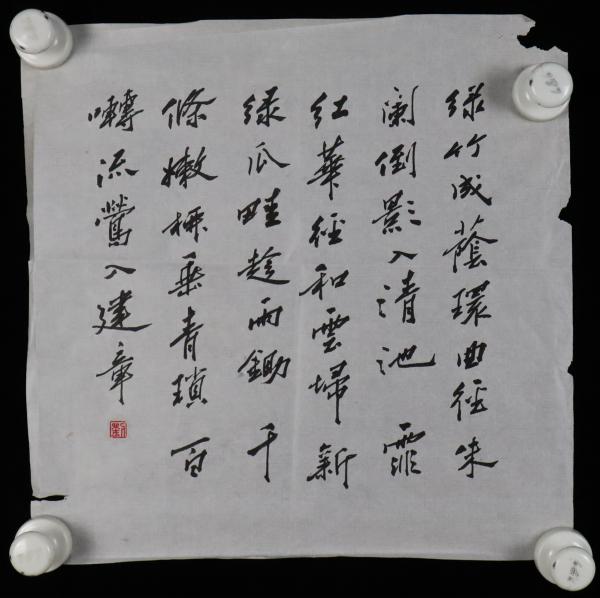 绿竹成蔭環曲徑朱
闌倒影入清池 霏
红華徑和雲掃新
绿瓜畦趁雨鋤 千
條嫩柳垂青瑣 百
囀流鶯入建章